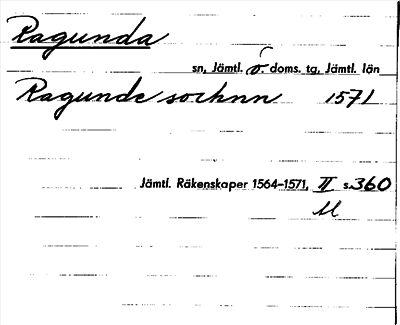 Ragunda
sn, Jämtl. ö. doms. tg, Jämtl. län
Ragunde socknn 1571
Jämtl. Räkenskaper 1564–1571, II s. 360